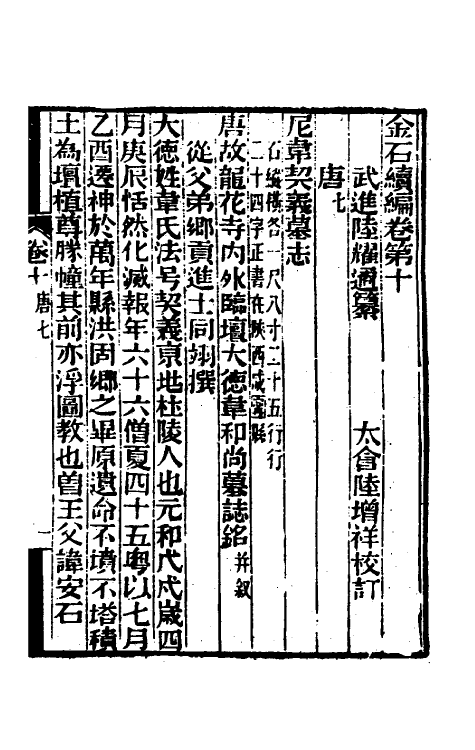 金石續編卷第十
武進陸耀遹纂　太倉陸增祥校訂
唐七
尼韋契義墓志
石縱橫各一尺八寸二十五行行
二十四字正書在陝西咸寧縣
唐故龍花寺内外臨壇大德韋和尚墓誌銘并敘
從父弟鄉貢進士同翊撰
大德姓韋氏法号契義京地杜陵人也元和戊戌歲四
月庚辰恬然化滅報年六十六僧夏四十五粤以七月
乙酉遷神於萬年縣洪固鄉之畢原遺命不墳不塔積
土為壇植尊勝幢其前亦浮圖教也曽王父諱安石
卷十　唐七　一